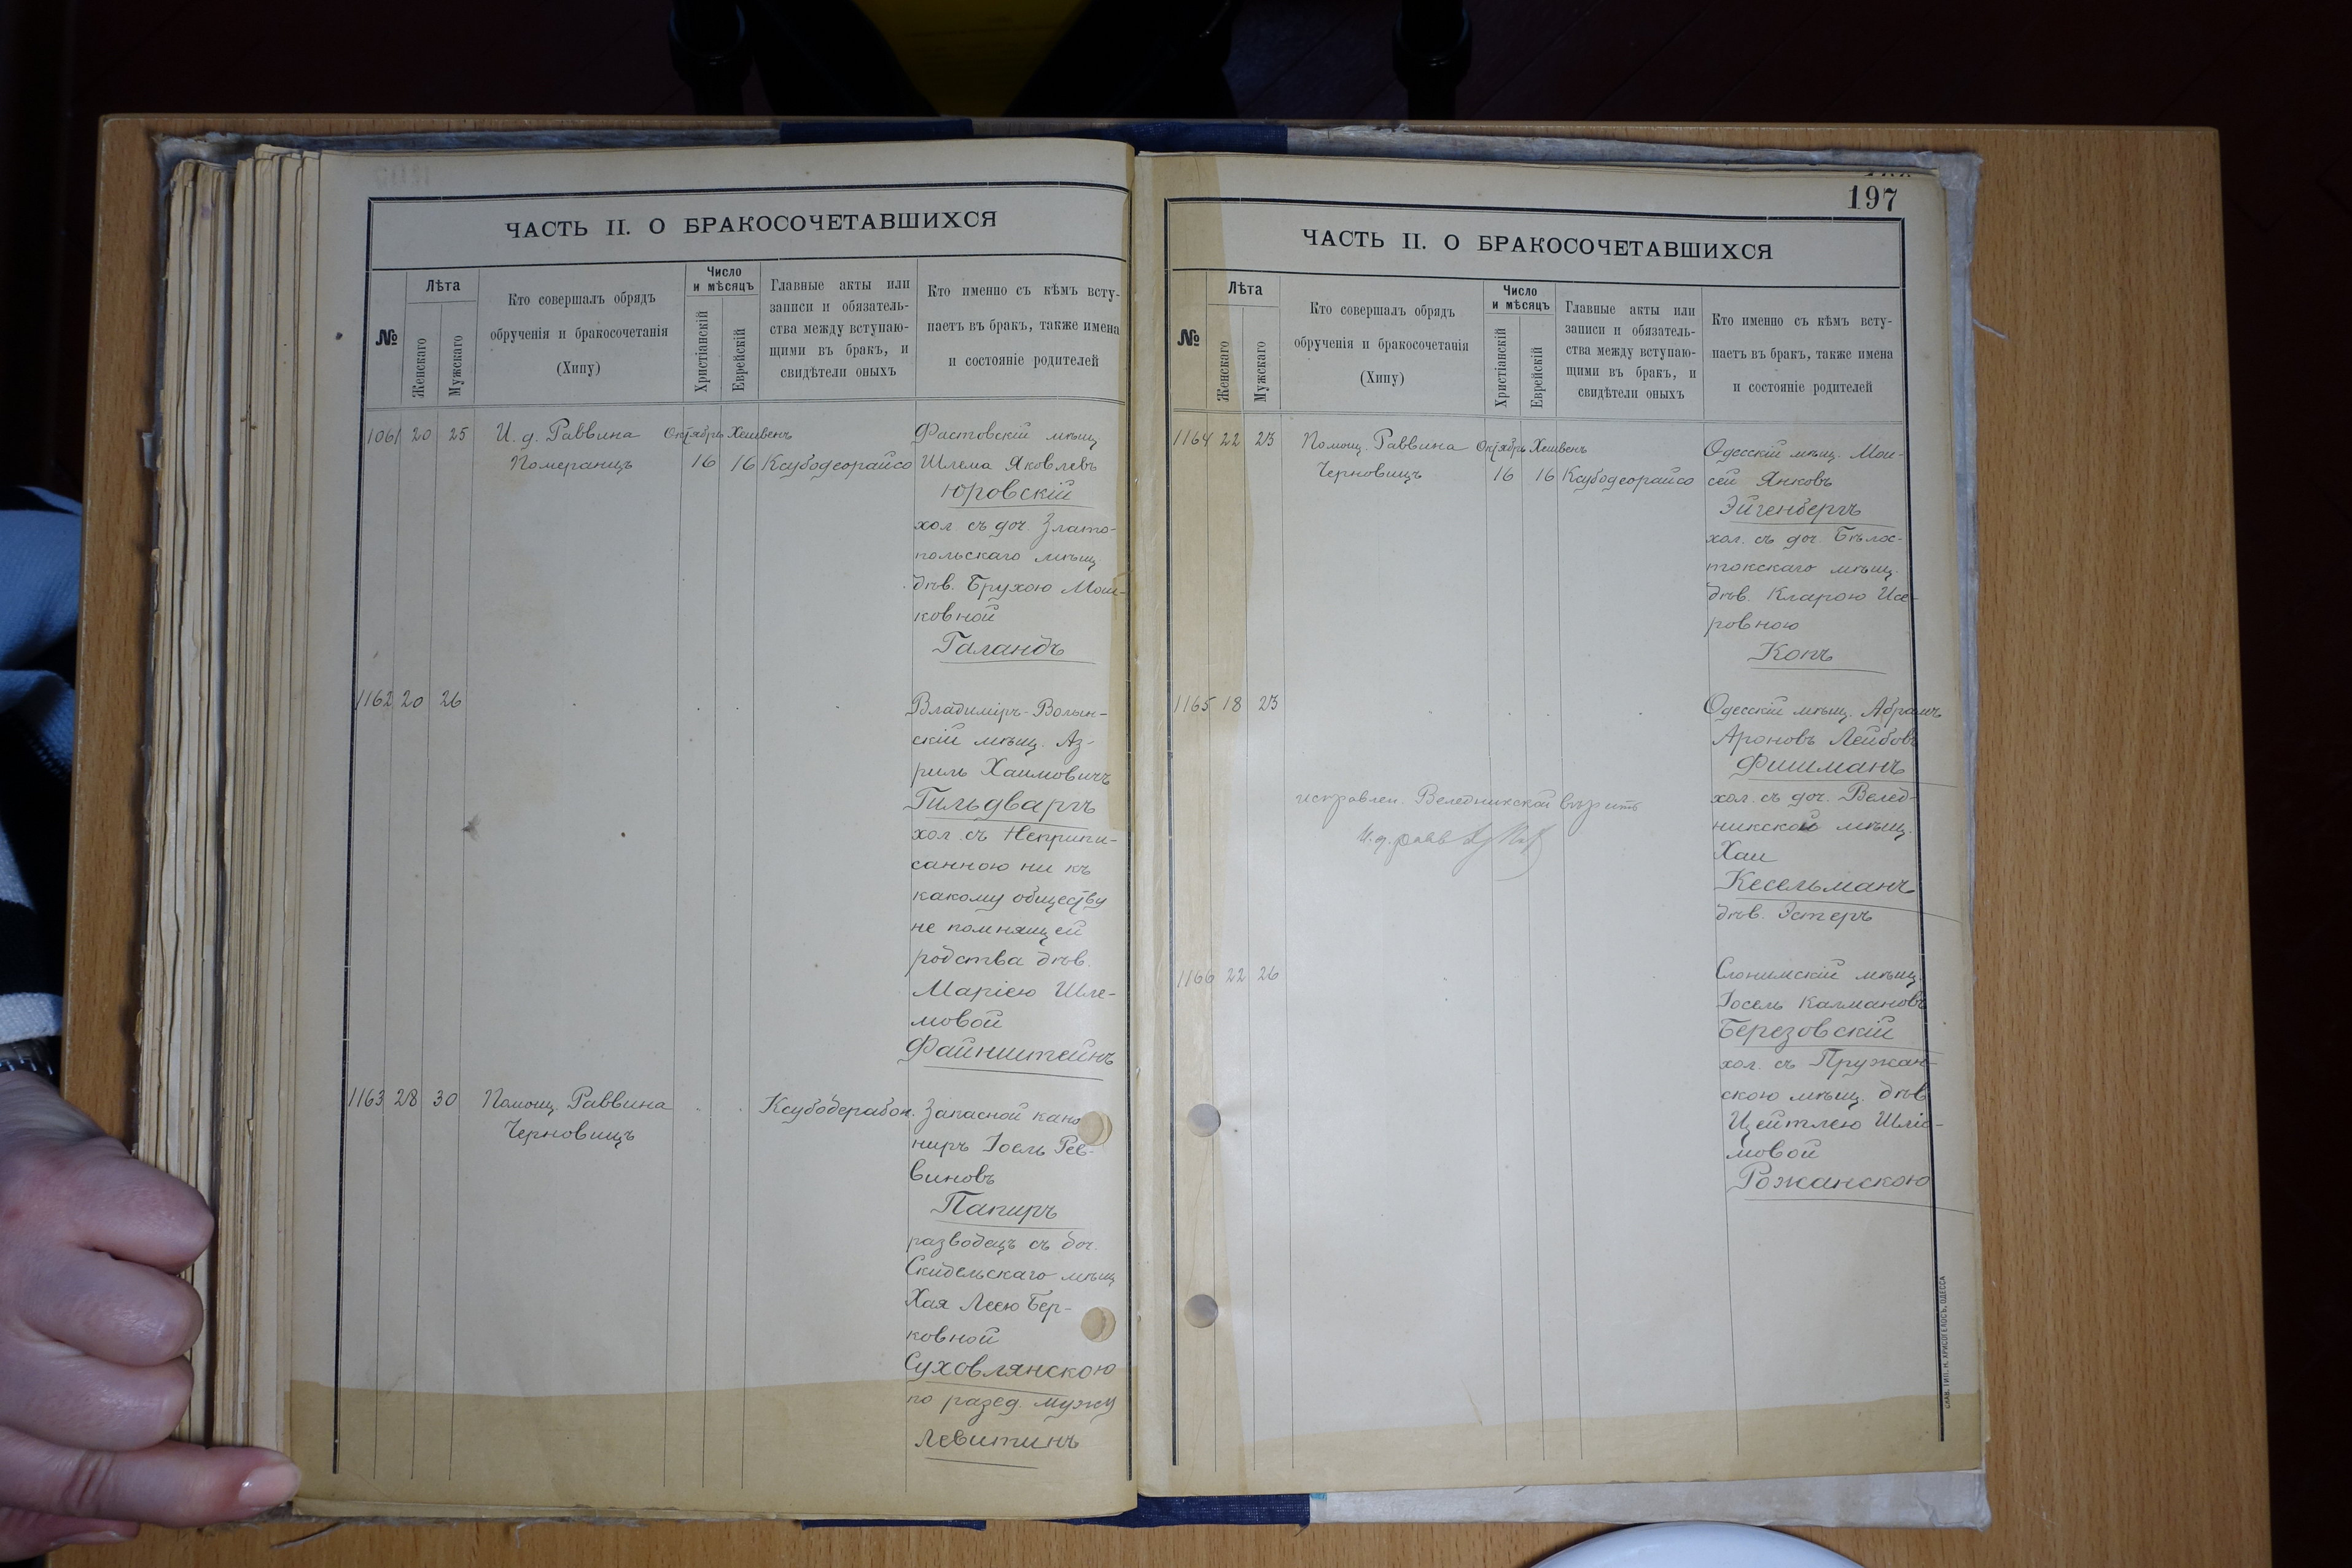 ЧАСТЬ II. О БРАКОСОЧЕТАВШИХСЯ
№
Лѣта
Женскаго
Мужскаго
Кто совершалъ обрядъ
обрученія и бракосочетанія
(Хипу)
Число
и мѣсяцъ
Христіанскій
Еврейскій
Главные акты или
записи и обязатель-
ства между вступаю-
щими въ бракъ, и
свидѣтели оныхъ
Кто именно съ кѣмъ всту-
паетъ въ бракъ, также имена
и состояніе родителей
1061 20 25 И. д. Раввина Октябрь Хешвенъ Фастовскій мѣщ
Померанцъ 16 16 Ксубодеорайсо Шлема Яковлевъ
Юровскій
хол. съ доч. Злато-
польскаго мѣщ
дѣв. Брухою Мош-
ковной
Галандъ
1162 20 26 Владиміръ-Волын-
скій мѣщ. Аз-
риль Хаимовичъ
Гильдваргъ
хол. съ Неприпи-
санною ни къ
какому обществу
не помнящей
родства дѣв.
Маріею Шле-
мовой
Файнштейнъ
1163 28 30 Помощ. Раввина Ксубодерабон. Запасной кано
Черновицъ ниръ Іоель Рев-
виновъ
Папиръ
разводецъ съ доч.
Скидельскаго мѣщ
Хая Леею Бер-
ковной
Суховлянскою
по развед. мужу
Левитинъ
197
ЧАСТЬ II. О БРАКОСОЧЕТАВШИХСЯ
№
Лѣта
Женскаго
Мужскаго
Кто совершалъ обрядъ
обрученія и бракосочетанія
(Хипу)
Число
и мѣсяцъ
Христіанскій
Еврейскій
Главные акты или
записи и обязатель-
ства между вступаю-
щими въ бракъ, и
свидѣтели оныхъ
Кто именно съ кѣмъ всту-
паетъ въ бракъ, также имена
и состояніе родителей
1164 22 23 Помощ. Раввина Октябрь Хешвенъ Одесскій мѣщ. Мои-
Черновицъ 16 16 Ксубодеорайсо сей Янковъ
Эйгенбергъ
хол. съ доч. Бѣлос-
токскаго мѣщ.
дѣв. Кларою Исе-
ровною
Копъ
1165 18 23 Одесскій мѣщ. Абрамъ
Ароновъ Лейбовъ
Фишманъ
хол. съ доч. Велед-
исправлен. Веледникской вѣрить
никской мѣщ.
И. д. равв
Хаи
Кесельманъ
дѣв. Эстеръ
1166 22 26 Слонимскій мѣщ.
Іосель Калмановъ
Березовскій
хол. съ Пружан-
скою мѣщ. дѣв
Цейтлею Шліо-
мовой
Рожанскою
СЛАВ. ТИП. Н. ХРИСОГЕЛОСЪ, ОДЕССА